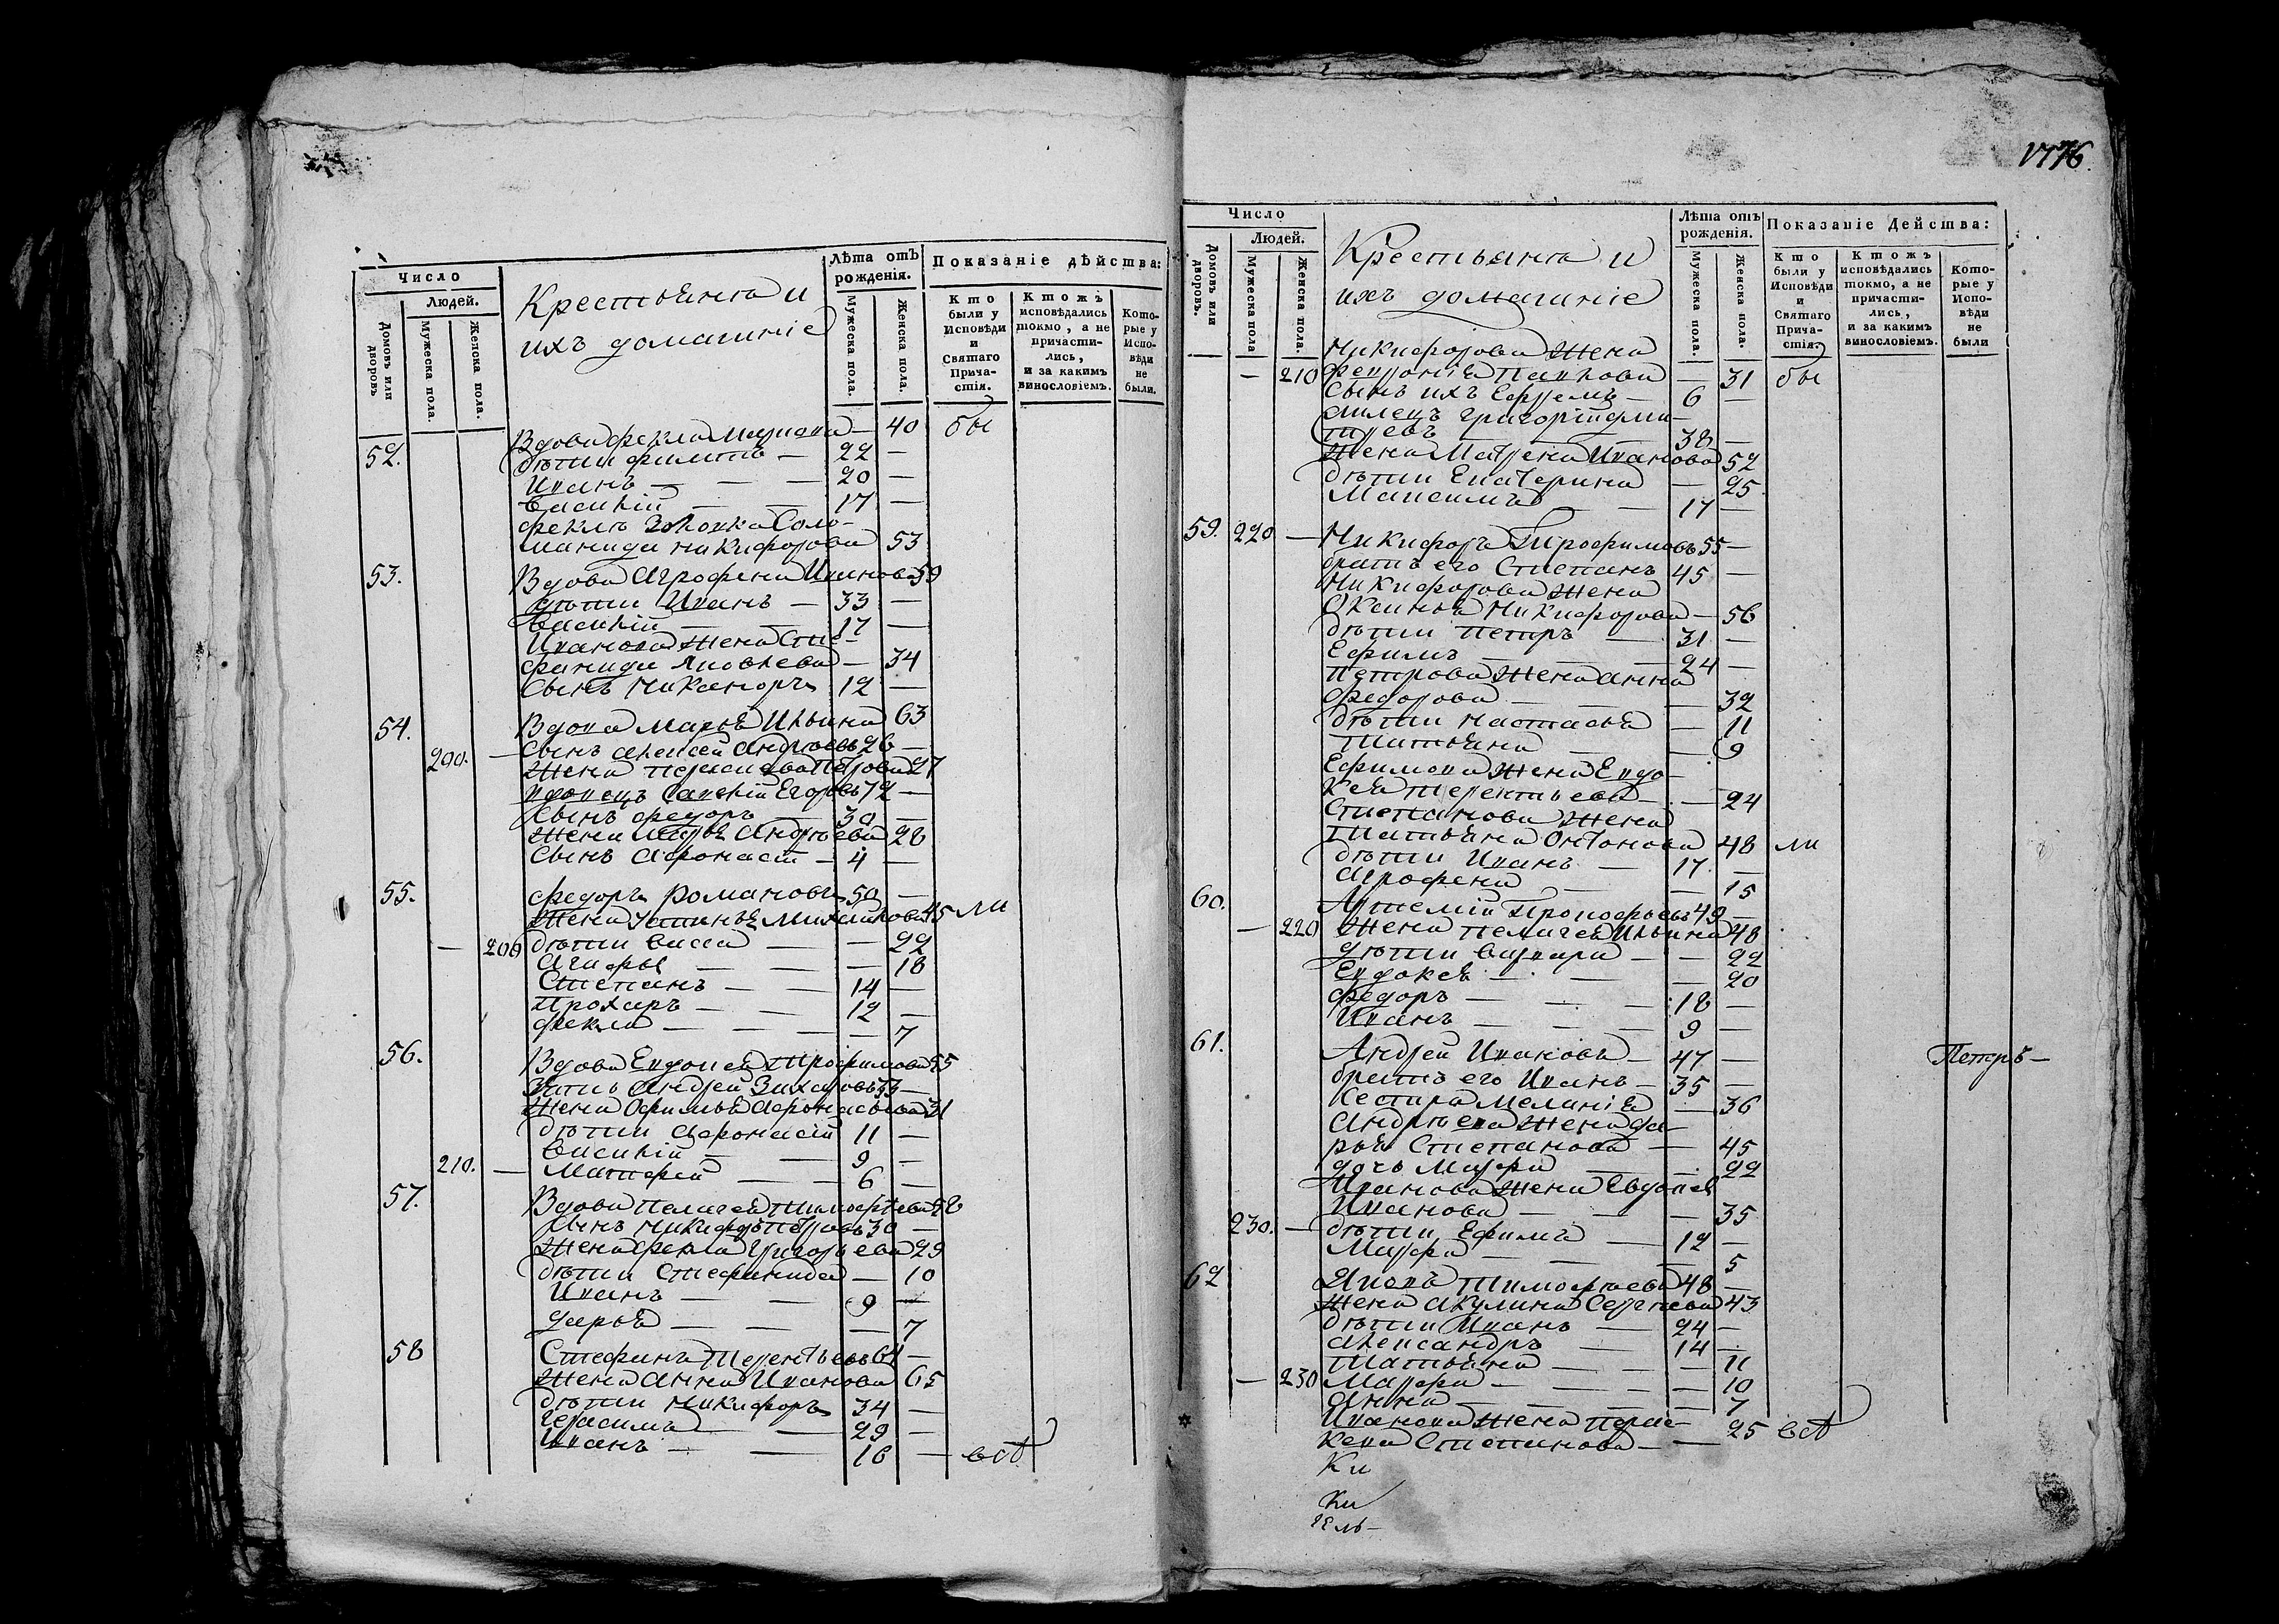 Число
Людей.
Домовъ или дворовъ
Мужеска пола.
Женска пола.
Крестьяне и
ихъ домашніе
Лѣта отъ рожденія.
Мужеска пола.
Женска пола.
Показаніе дѣйства:
Кто были у Исповѣди и Святаго Причастія.
Ктожъ исповѣдались токмо, а не причастились, и за какимъ винословіемъ.
Которые у Исповѣди не были.
52. Вдова Фекла 40 бы
дѣти Филипъ — 22 —
Иванъ — — — 20 —
Василій — — 17 —
Феклы золовка Соло-
манида Никифорова 53
53. Вдова Агрофена Иванова 59
дѣти Иванъ — 33 —
Василій — — 17 —
Иванова жена Сте-
фанида Яковлева — 34
Сынъ Никаноръ 12 —
54. Вдова Марья Ильина 63
200. — Сынъ Алексей Андреевъ 26 —
Жена Петрова 27
вдовецъ Савелій Егоровъ 72 —
Сынъ Федоръ — 30 —
Жена Марья Андреева 28
Сынъ Афонасій — 4 —
55. Федоръ Романовъ 50 —
Жена Устинья Михайлова 45 ли
— 200 дѣти Васса — — 22
Агафья — — — 18
Степанъ — — 14 —
Прохоръ — — 12 —
Фекла — — — 7
56. Вдова Евдокея Трофимова 55
Зять Андрей Захаровъ 33 —
Жена Офимья Афонасьева 31
дѣти Афонасій 11 —
Василій — — 9 —
210. — Матфей — — 6 —
57. Вдова Пелагея Тимофеева 58
Сынъ Никифоръ Петровъ 30 —
Жена Фекла Григорьева 29
дѣти Стефанида — 10
Иванъ — — 9 —
Дарья — — — 7
58 Стефанъ Терентьевъ 64 —
Жена Анна Иванова 65
дѣти Никифоръ 34 —
Герасимъ — — 29 —
Иванъ — — 16 —
Число
Людей.
Домовъ или дворовъ.
Мужеска пола
Женска пола.
Крестьяне и
ихъ домашніе
Лѣта отъ рожденія.
Мужеска пола.
Женска пола.
Показаніе Действа:
Кто были у Исповѣди и Святаго Причастія.
Ктожъ исповѣдались токмо, а не причастились, и за какимъ винословіемъ.
Которые у Исповѣди не были
Никифорова жена
— 210 Павлова — 31 бы
Сынъ ихъ Ефремъ — 6 —
Григорій Дми-
тревъ — — 38 —
Жена Матрена Иванова 52
дѣти Екатерина — 25
Максимъ — — 17 —
59. 220 — Никифоръ Трофимовъ 55 —
братъ его Степанъ 45 —
Никифорова жена
Оксинья Никифорова — 56
дѣти Петръ — 31 —
Ефимъ — — 24 —
Петрова жена Анна
Федорова — — — 32
дѣти Настасья — 11
Татьяна — — 9
Ефимова жена Евдо-
кея Терентьева — — 24
Степанова жена
Татьяна Онтонова 48 ли
дѣти Иванъ — 17 —
Агрофена — — 15
60. Артемій Прокофьевъ 49 —
— 220 Жена Пелагея Ильина 48
дѣти Варвара — — 22
Евдокея — — 20
Федоръ — — — 18 —
Иванъ — — — 9 —
61. Андрей Ивановъ — 47 — Петръ —
братъ его Иванъ — 35 —
Сестра Меланія — 36
Андреева жена Да-
рья Степанова — 45
дочь Марфа — — 22
Иванова жена Евдокея
Иванова — — — 35
230. — дѣти Ефимъ — 12 —
Марфа — — — 5
62 Яковъ Тимофеевъ 48 —
Жена Акулина Сергеева 43
дѣти Иванъ — 24 —
Александръ — 14 —
Татьяна — — — 11
— 230 Марфа — — — 10
Анна — — — 7
Иванова жена Прас-
кева Степанова — — 25
Ки
Ки